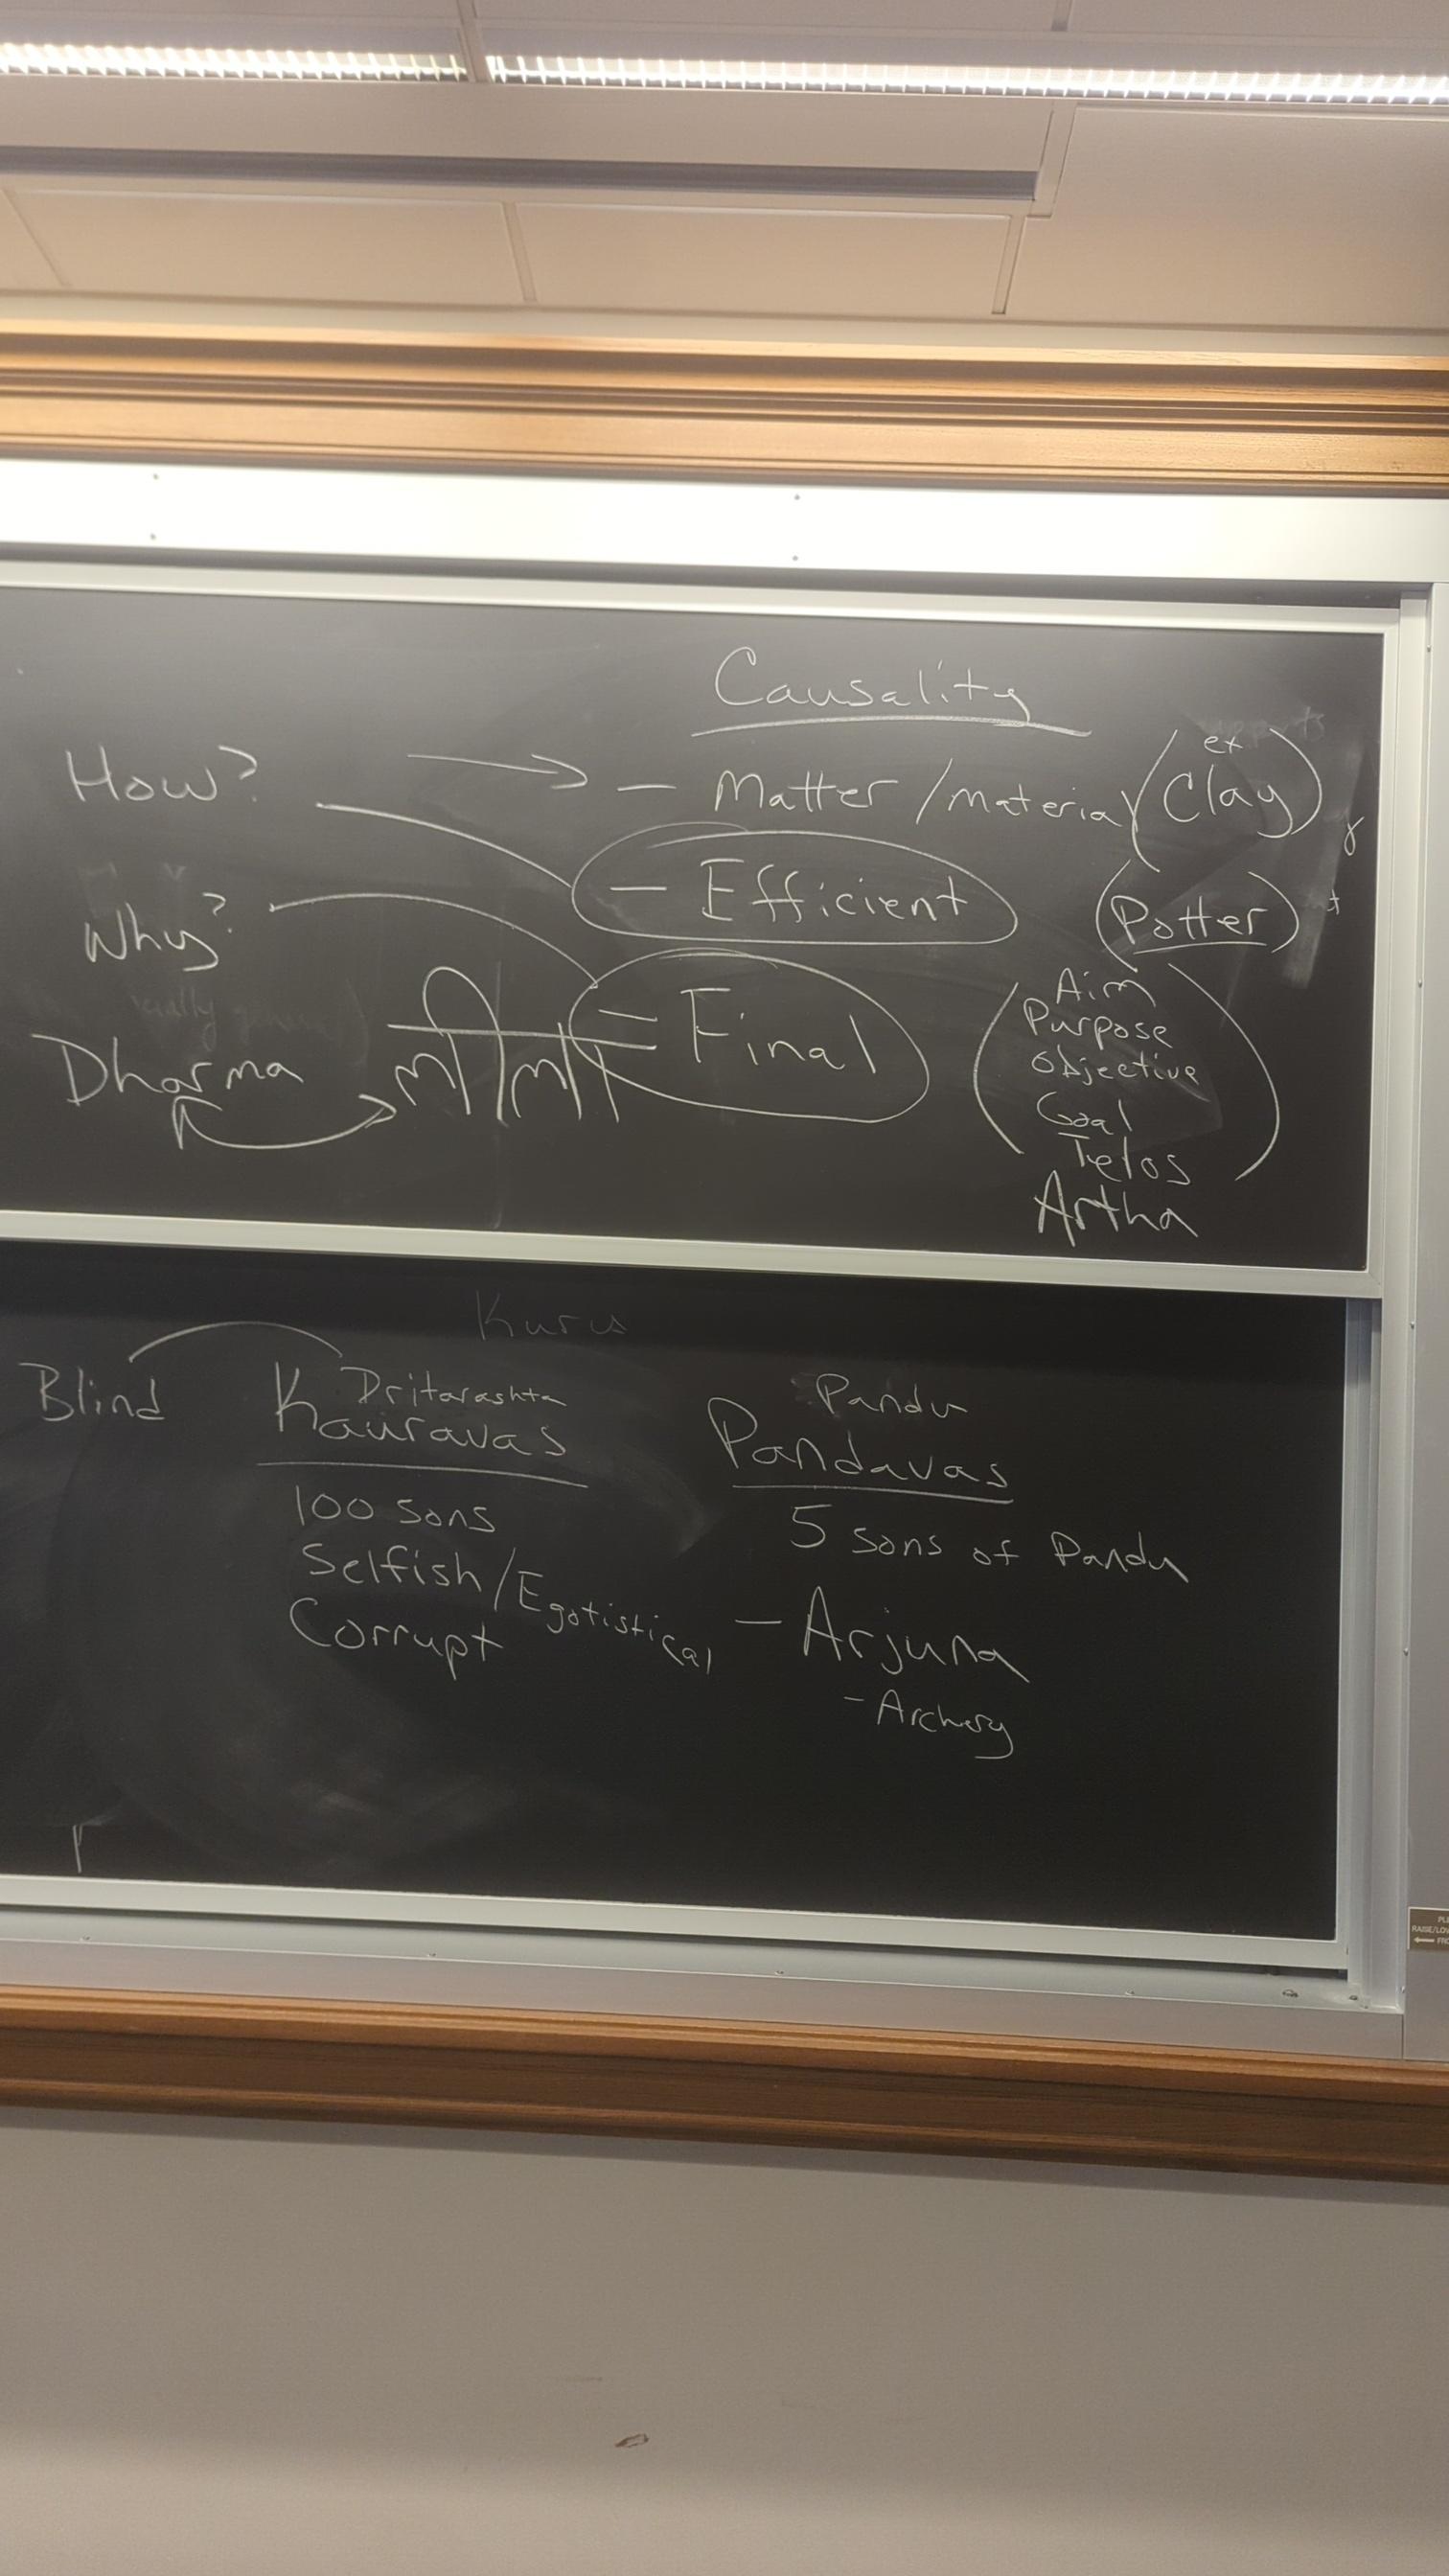 Causality
How? → - Matter / material (ex Clay)
- Efficient (Potter)
Why?
= Final (Aim
Purpose
Objective
Goal
Telos
Artha
Dharma
Kuru
Blind
Dritarashta
Kauravas
100 sons
Selfish/Egotistical
Corrupt
Pandu
Pandavas
5 sons of Pandu
- Arjuna
- Archery